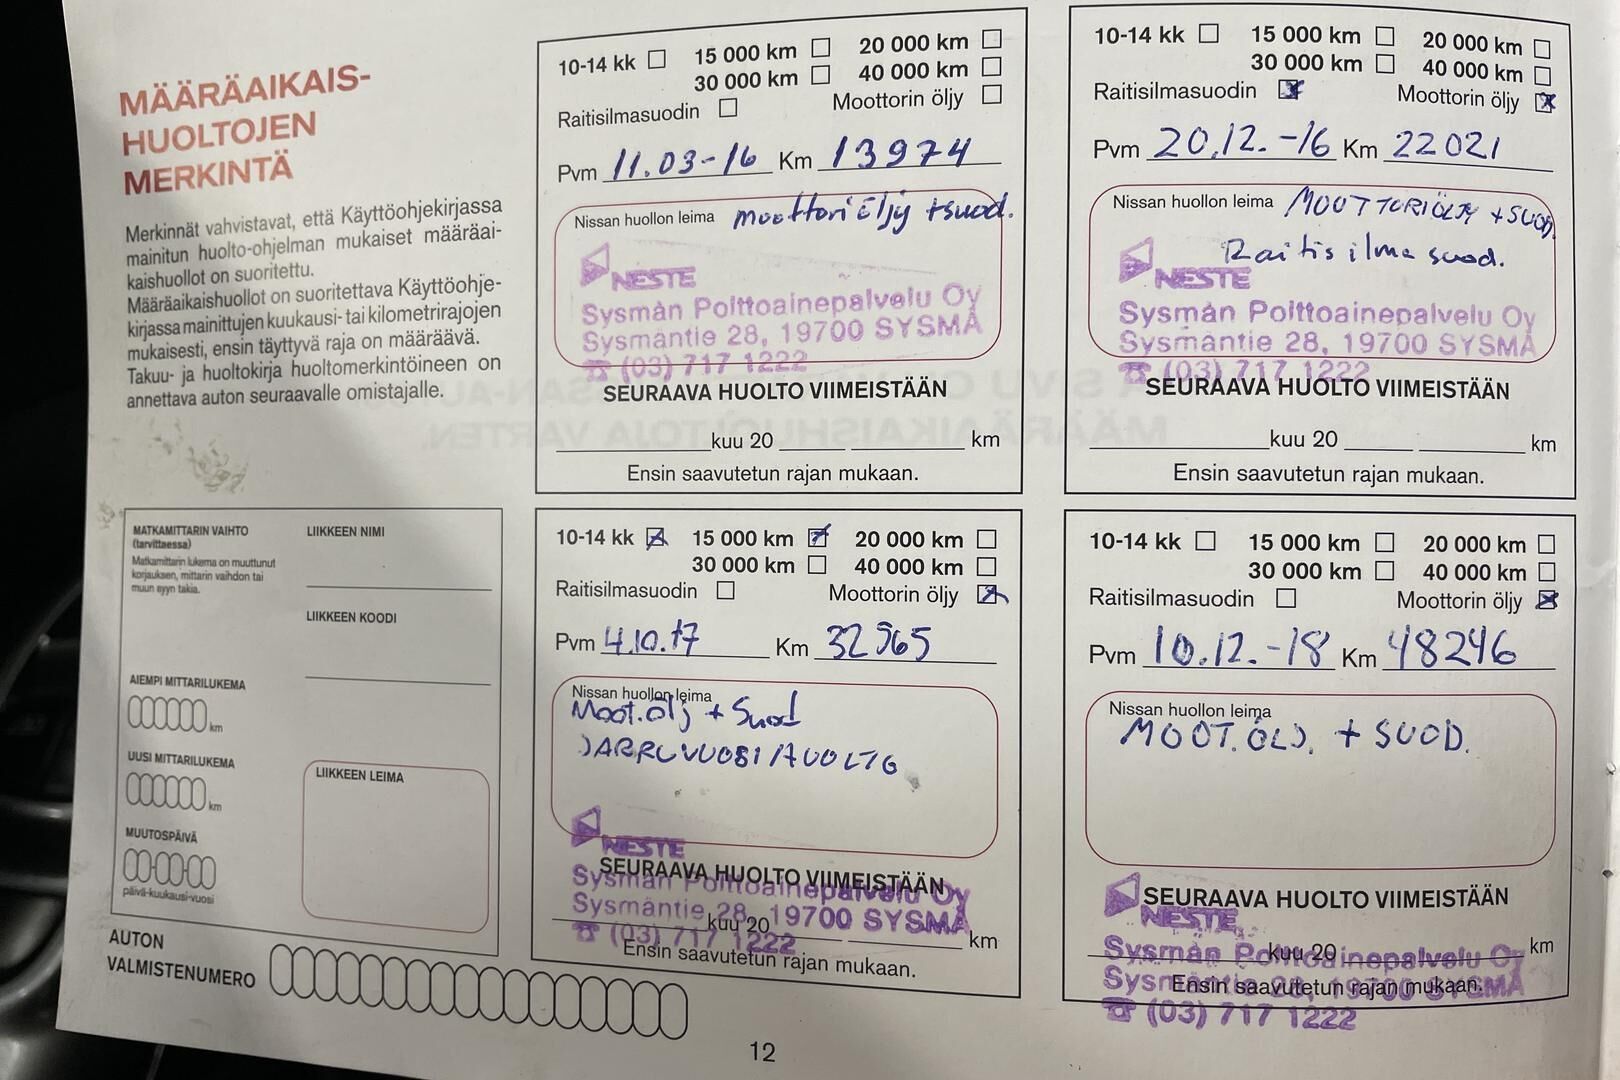 MÄÄRÄAIKAIS-
HUOLTOJEN
MERKINTÄ
Merkinnät vahvistavat, että Käyttöohjekirjassa
mainitun huolto-ohjelman mukaiset määräai-
kaishuollot on suoritettu.
Määräaikaishuollot on suoritettava Käyttöohje-
kirjassa mainittujen kuukausi- tai kilometrirajojen
mukaisesti, ensin täyttyvä raja on määräävä.
Takuu- ja huoltokirja huoltomerkintöineen on
annettava auton seuraavalle omistajalle.
10-14 kk 15 000 km 20 000 km
30 000 km 40 000 km
Raitisilmasuodin Moottorin öljy
Pvm 11.03-16 Km 13974
Nissan huollon leima moottori öljy +suod.
NESTE
Sysmän Polttoainepalvelu Oy
Sysmäntie 28, 19700 SYSMÄ
☎ (03) 717 1222
SEURAAVA HUOLTO VIIMEISTÄÄN
kuu 20 km
Ensin saavutetun rajan mukaan.
10-14 kk 15 000 km 20 000 km
30 000 km 40 000 km
Raitisilmasuodin Moottorin öljy
Pvm 20.12.-16 Km 22021
Nissan huollon leima MOOTTORIÖLJY + SUOD.
Raitisilma suod.
NESTE
Sysmän Polttoainepalvelu Oy
Sysmäntie 28, 19700 SYSMÄ
☎ (03) 717 1222
SEURAAVA HUOLTO VIIMEISTÄÄN
kuu 20 km
Ensin saavutetun rajan mukaan.
MATKAMITTARIN VAIHTO
(tarvittaessa)
Matkamittarin lukema on muuttunut
korjauksen, mittarin vaihdon tai
muun syyn takia.
LIIKKEEN NIMI
LIIKKEEN KOODI
AIEMPI MITTARILUKEMA
km
UUSI MITTARILUKEMA
km
MUUTOSPÄIVÄ
päivä-kuukausi-vuosi
LIIKKEEN LEIMA
10-14 kk 15 000 km 20 000 km
30 000 km 40 000 km
Raitisilmasuodin Moottorin öljy
Pvm 4.10.17 Km 32565
Nissan huollon leima
Moot.ölj + Suod
JARRUVUOSIHUOLTO
NESTE
SEURAAVA HUOLTO VIIMEISTÄÄN
Sysmän Polttoainepalvelu Oy
Sysmäntie 28, 19700 SYSMÄ
kuu 20 km
☎ (03) 717 1222
Ensin saavutetun rajan mukaan.
10-14 kk 15 000 km 20 000 km
30 000 km 40 000 km
Raitisilmasuodin Moottorin öljy
Pvm 10.12.-18 Km 48246
Nissan huollon leima
MOOT.ÖLJ. + SUOD.
SEURAAVA HUOLTO VIIMEISTÄÄN
NESTE
kuu 20 km
Sysmän Polttoainepalvelu Oy
Ensin saavutetun rajan mukaan.
Sysmäntie 28, 19700 SYSMÄ
☎ (03) 717 1222
AUTON
VALMISTENUMERO
12